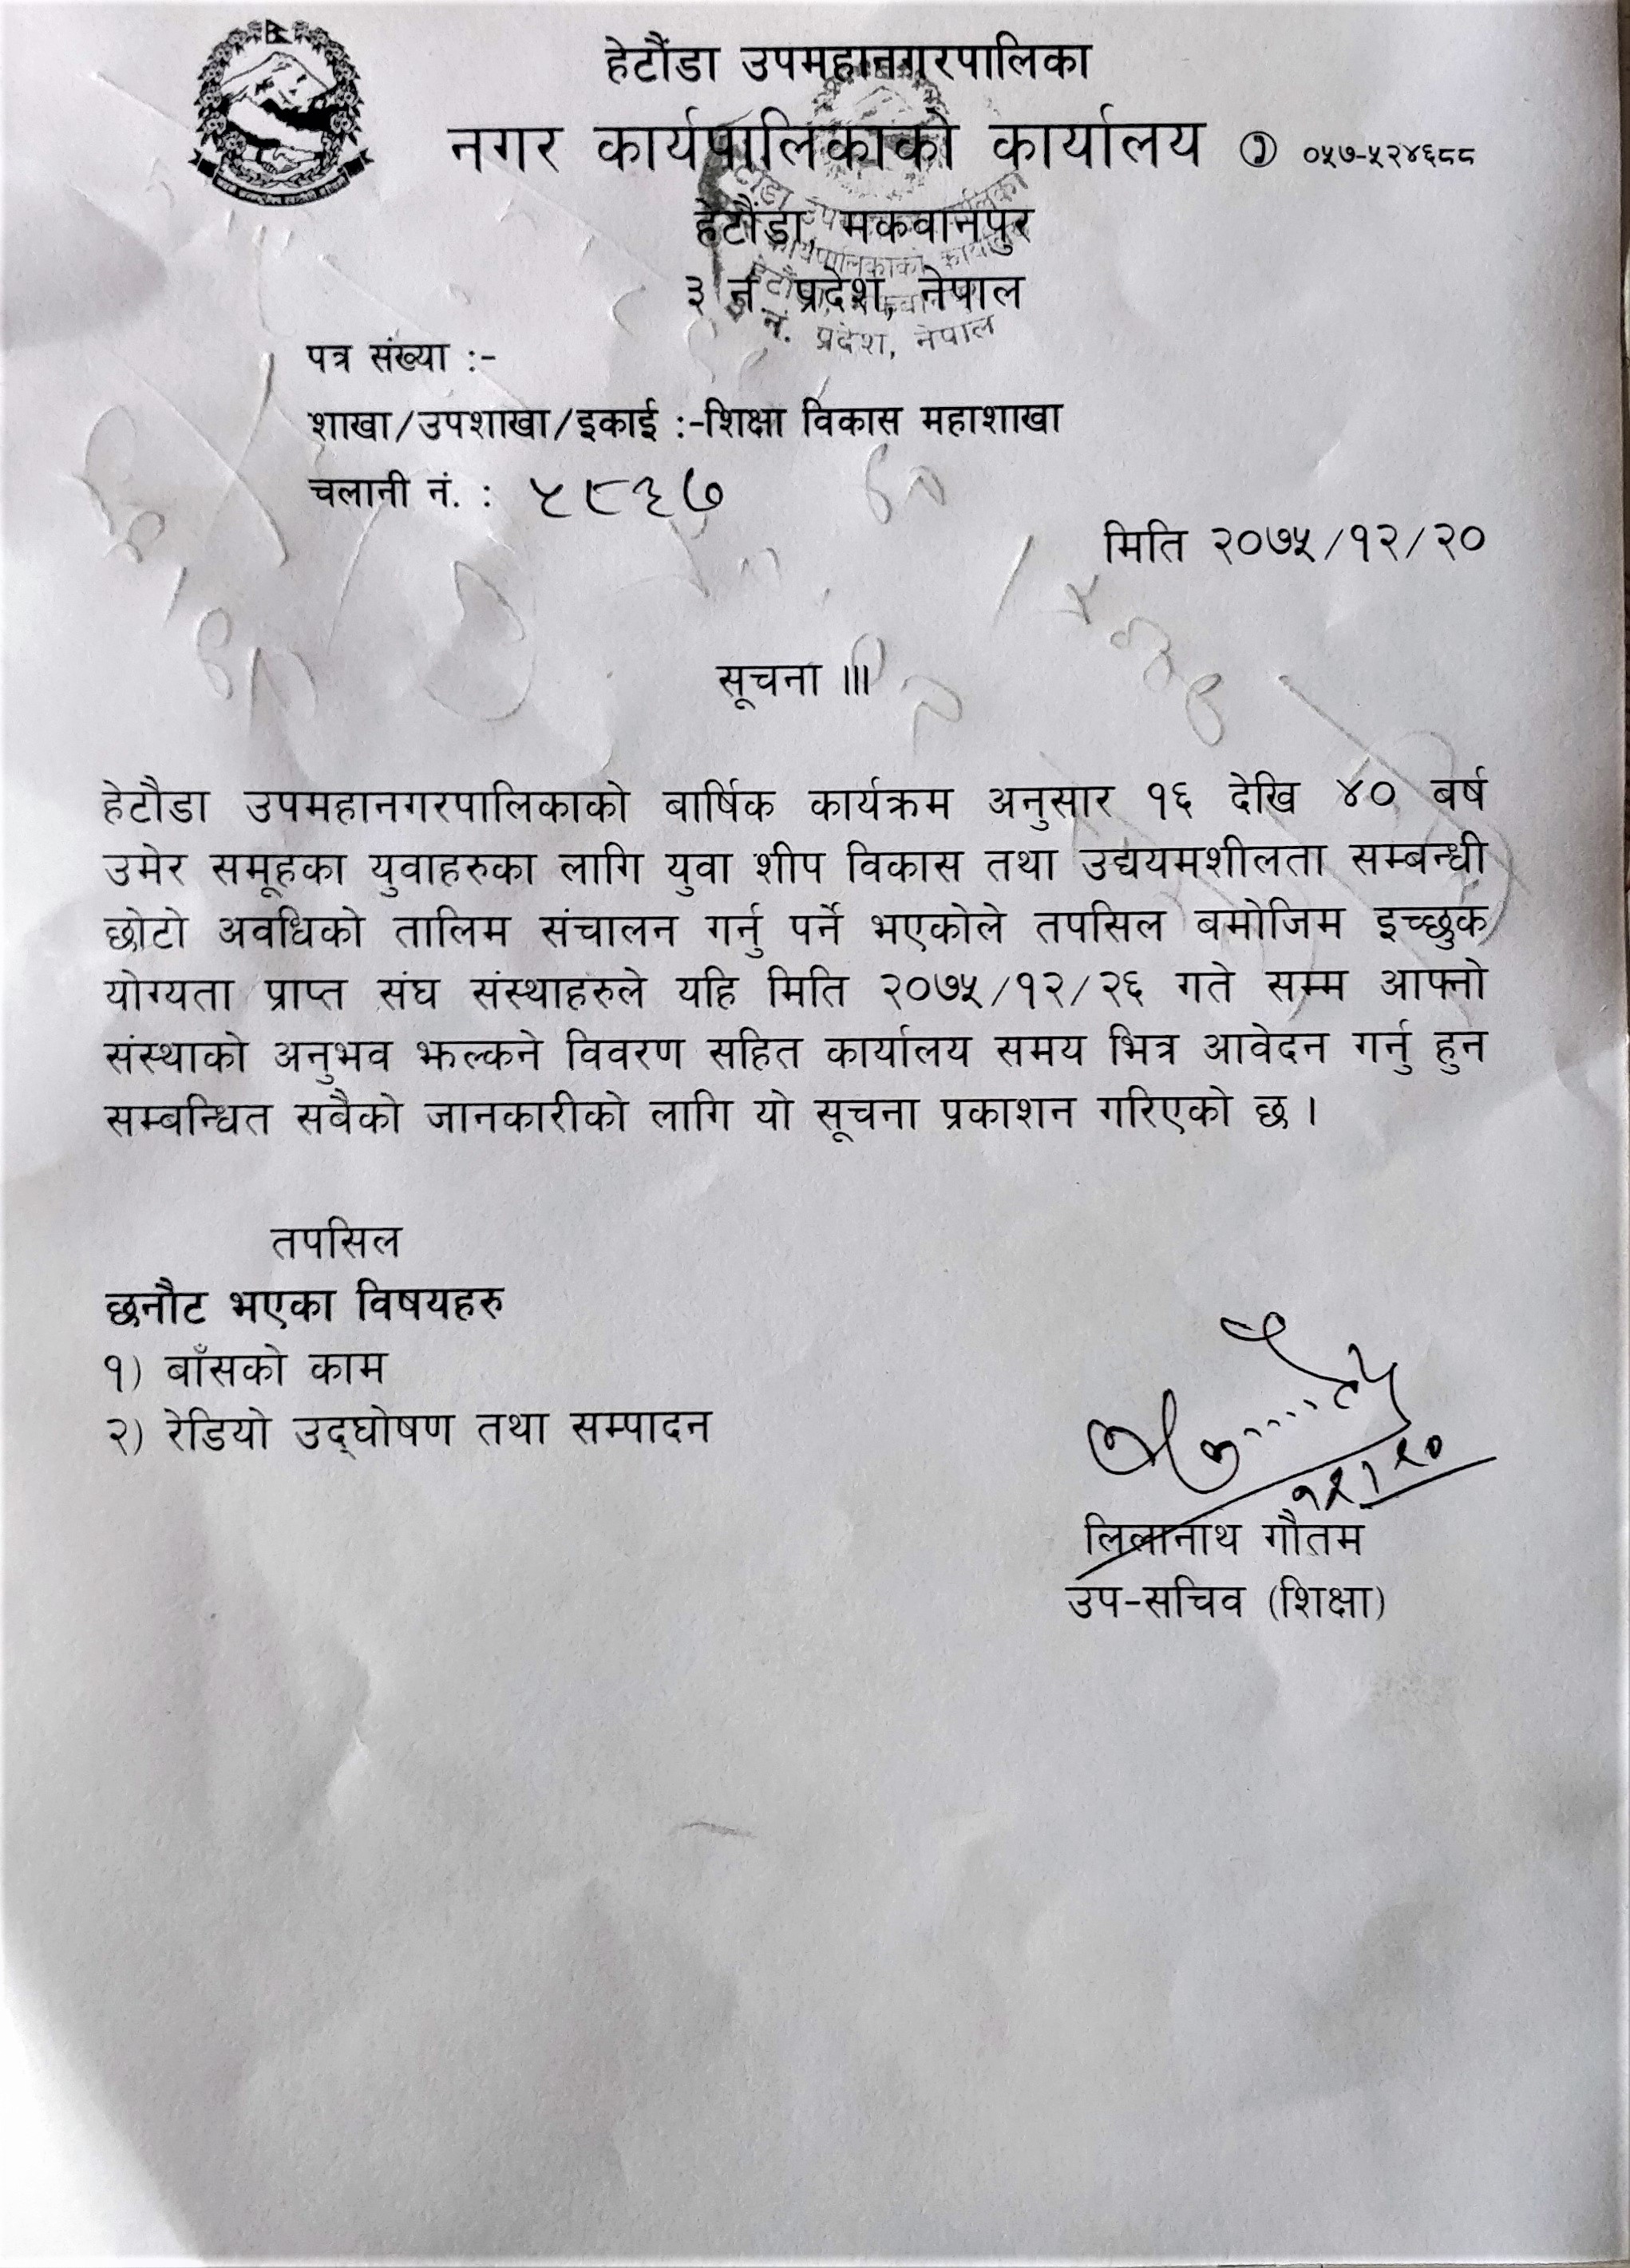 हेटौंडा उपमहानगरपालिका
नगर कार्यपालिकाको कार्यालय ०५७-५२४६८८
हेटौंडा, मकवानपुर
३ नं प्रदेश, नेपाल
नं. प्रदेश, नेपाल
पत्र संख्या :-
शाखा/उपशाखा/इकाई :-शिक्षा विकास महाशाखा
चलानी नं. : ५८३७
मिति २०७५/१२/२०
सूचना ।।।
हेटौडा उपमहानगरपालिकाको बार्षिक कार्यक्रम अनुसार १६ देखि ४० बर्ष
उमेर समूहका युवाहरुका लागि युवा शीप विकास तथा उद्ययमशीलता सम्बन्धी
छोटो अवधिको तालिम संचालन गर्नु पर्ने भएकोले तपसिल बमोजिम इच्छुक
योग्यता प्राप्त संघ संस्थाहरुले यहि मिति २०७५/१२/२६ गते सम्म आफ्नो
संस्थाको अनुभव झल्कने विवरण सहित कार्यालय समय भित्र आवेदन गर्नु हुन
सम्बन्धित सबैको जानकारीको लागि यो सूचना प्रकाशन गरिएको छ ।
तपसिल
छनौट भएका विषयहरु
१) बाँसको काम
२) रेडियो उद्‌घोषण तथा सम्पादन
१२।२०
लिलानाथ गौतम
उप-सचिव (शिक्षा)